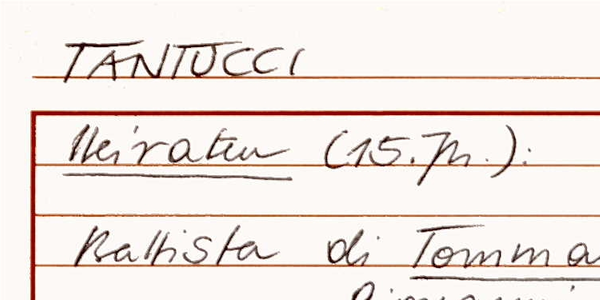 TANTUCCI
Heiraten (15. Jh.):
Battista di Tomma